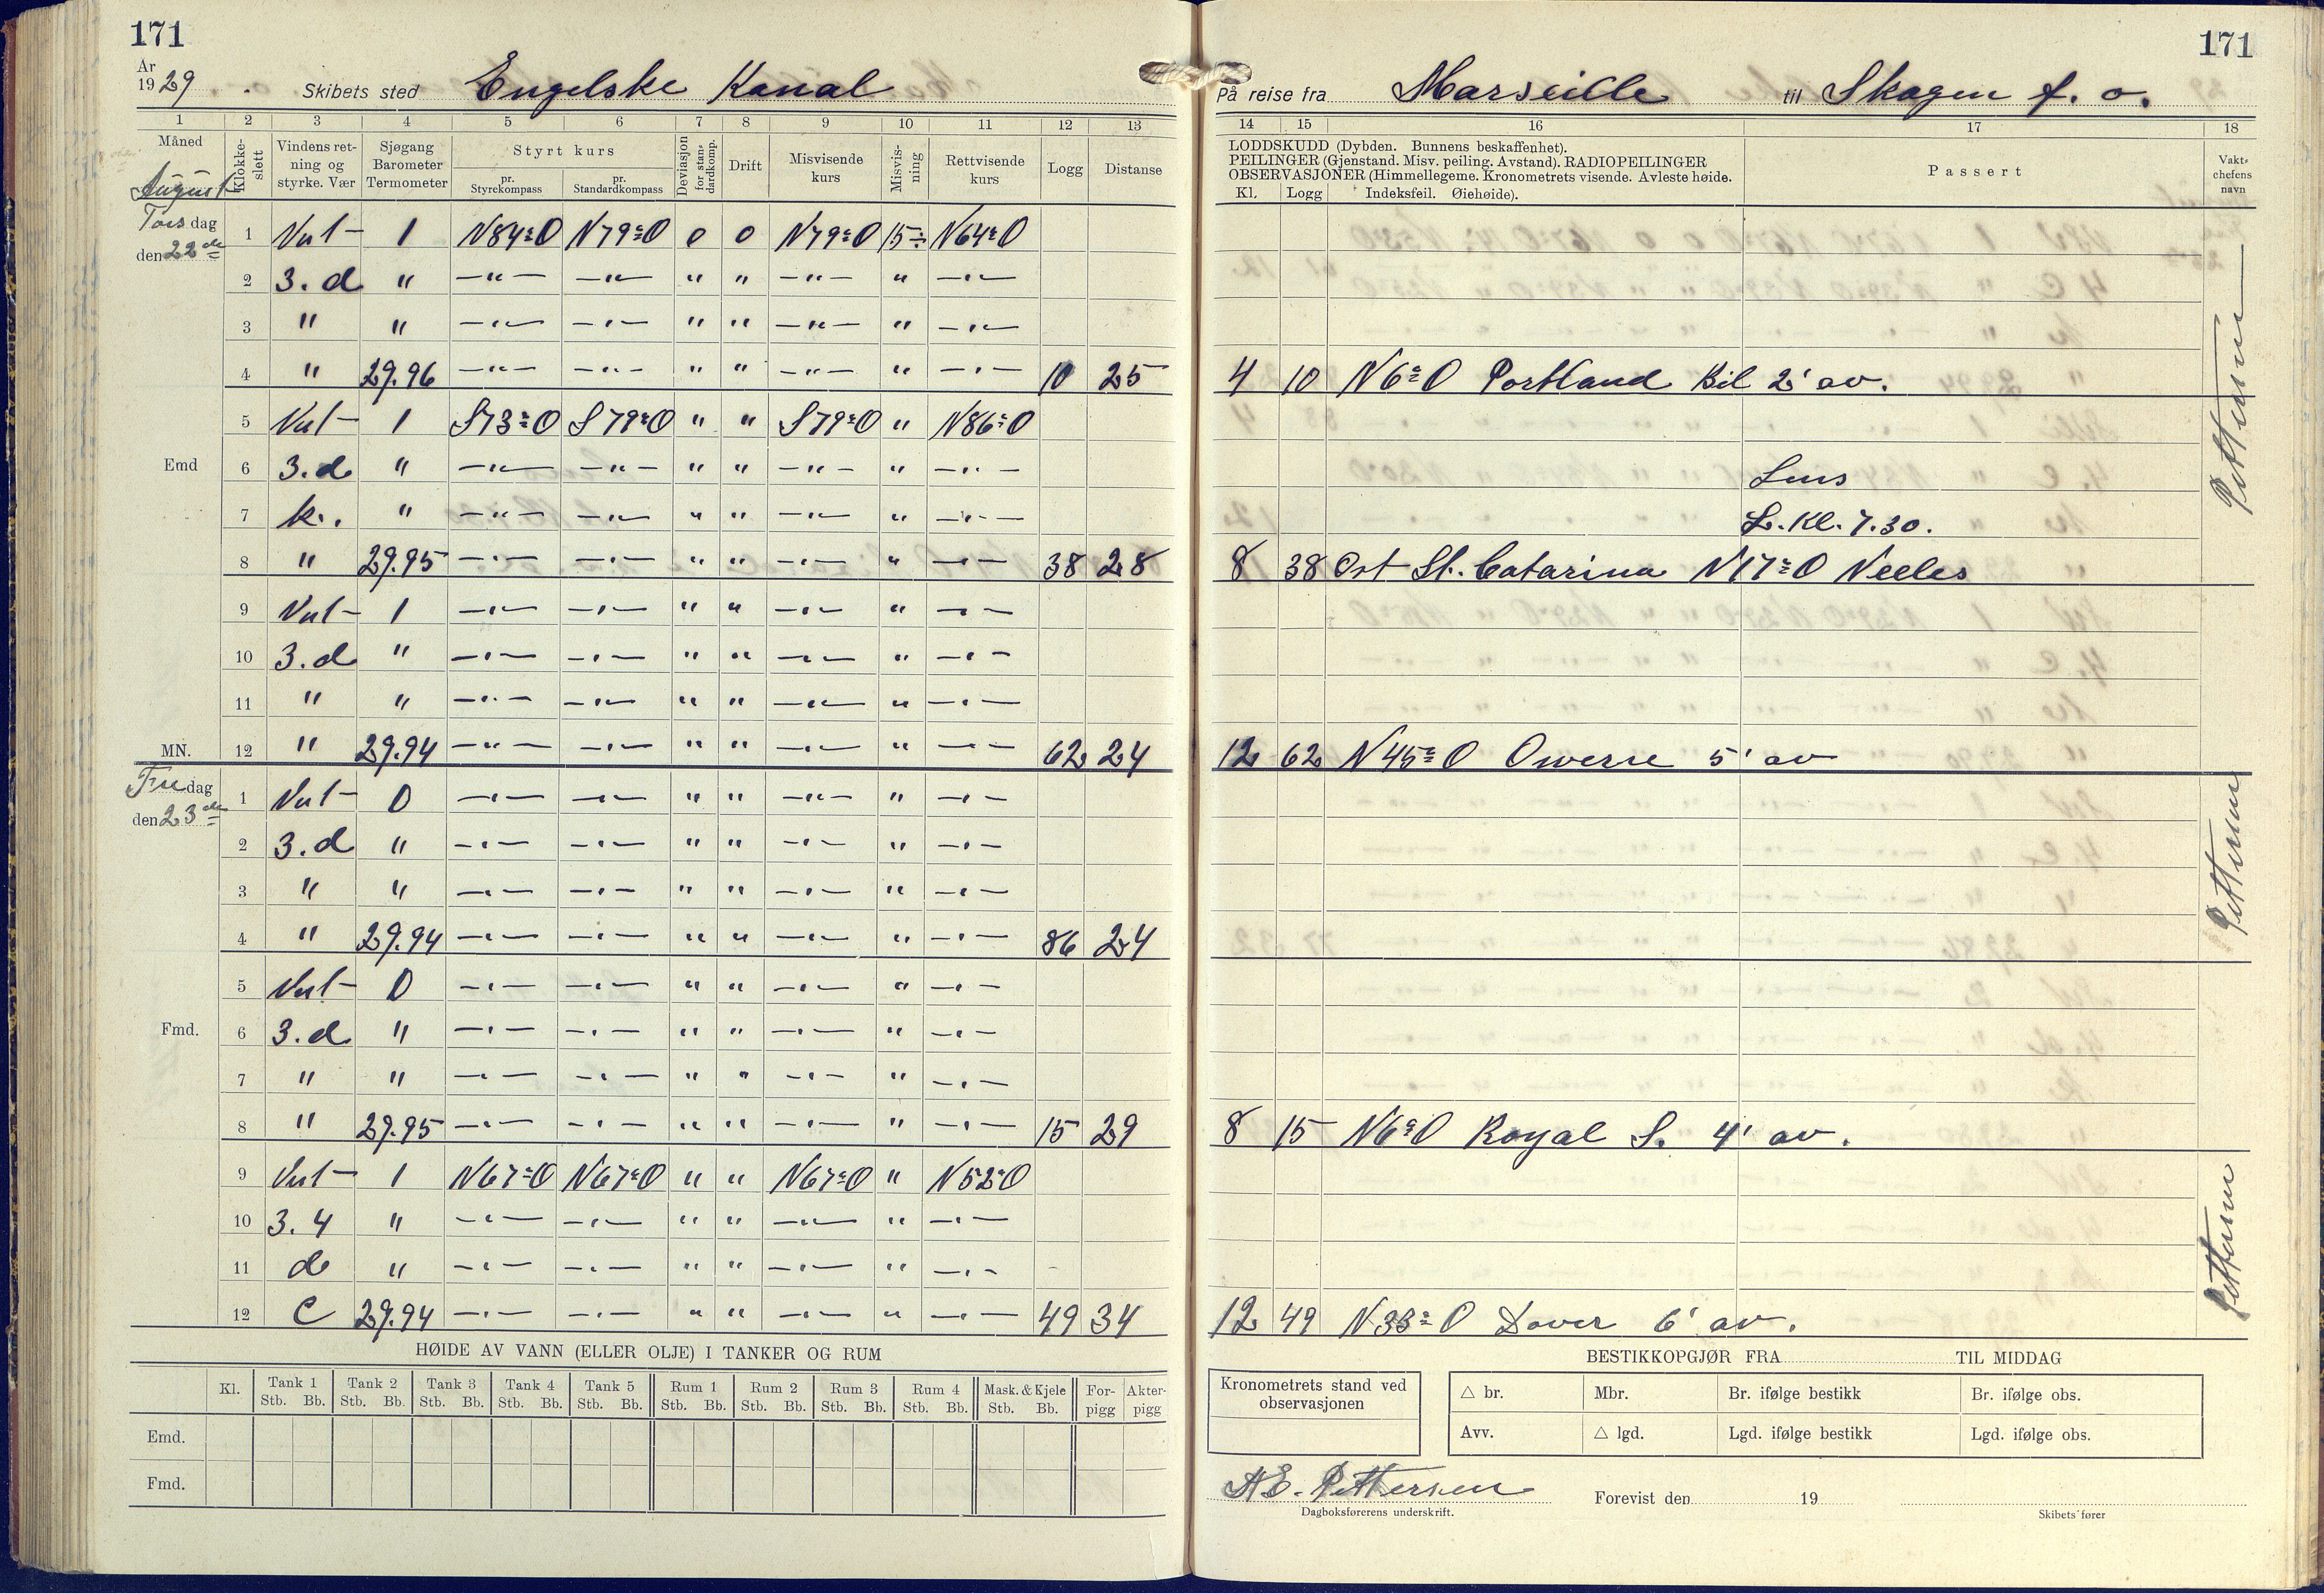 171
171
År
1929
Skibets sted Engelske Kanal
På reise fra Marseille til Skagen f. o.
1 2 3 4 5 6 7 8 9 10 11 12 13
14 15 16 17 18
Måned
August
Klokke-
slett
Vindens ret-
ning og
styrke. Vær
Sjøgang
Barometer
Termometer
Styrt kurs
pr.
Styrekompass
pr.
Standardkompass
Deviasjon
for stan-
dardkomp.
Drift
Misvisende
kurs
Misvis-
ning
Rettvisende
kurs
Logg
Distanse
LODDSKUDD (Dybden. Bunnens beskaffenhet).
PEILINGER (Gjenstand. Misv. peiling. Avstand). RADIOPEILINGER
OBSERVASJONER (Himmellegeme. Kronometrets visende. Avleste høide.
Kl. Logg Indeksfeil. Øiehøide).
Passert
Vakt-
chefens
navn
Torsdag
den 22de
1 Vest 1 N84°O N79°O 0 0 N79°O 15÷ N64°O
2 3. d " —"— —"— " " —"— " —"—
3 " " —"— —"— " " —"— " —"—
4 " 29.96 —"— —"— " " —"— " —"— 10 25
4 10 N6°O Portland Bil 2' av.
5 Vest 1 S73°O S79°O " " S79°O " N86°O
Emd 6 3.d " —"— —"— " " —"— " —"—
Lens
7 k. " —"— —"— " " —"— " —"—
L. Kl. 7.30.
8 " 29.95 —"— —"— " " —"— " —"— 38 28
8 38 Ost St. Catarina N17°O Neeles
9 Vest 1 —"— —"— " " —"— " —"—
10 3.d " —"— —"— " " —"— " —"—
11 " " —"— —"— " " —"— " —"—
MN. 12 " 29.94 —"— —"— " " —"— " —"— 62 24
12 62 N45°O Owerse 5' av
Fredag
den 23de
1 Vest 0 —"— —"— " " —"— " —"—
2 3.d " —"— —"— " " —"— " —"—
3 " " —"— —"— " " —"— " —"—
4 " 29.94 —"— —"— " " —"— " —"— 86 24
5 Vest 0 —"— —"— " " —"— " —"—
Fmd. 6 3.d " —"— —"— " " —"— " —"—
7 " " —"— —"— " " —"— " —"—
8 " 29.95 —"— —"— " " —"— " —"— 15 29
8 15 N6°O Royal S. 4' av.
9 Vest 1 N67°O N67°O " " N67°O " N52°O
10 3.4 " —"— —"— " " —"— " —"—
11 d " —"— —"— " " —"— " —"—
12 C 29.94 —"— —"— " " —"— " —"— 49 34
12 49 N33°O Dover 6' av.
HØIDE AV VANN (ELLER OLJE) I TANKER OG RUM
Kl.
Tank 1
Stb. Bb.
Tank 2
Stb. Bb.
Tank 3
Stb. Bb.
Tank 4
Stb. Bb.
Tank 5
Stb. Bb.
Rum 1
Stb. Bb.
Rum 2
Stb. Bb.
Rum 3
Stb. Bb.
Rum 4
Stb. Bb.
Mask. & Kjele
Stb. Bb.
For-
pigg
Akter-
pigg
Emd.
Fmd.
BESTIKKOPGJØR FRA TIL MIDDAG
Kronometrets stand ved
observasjonen
△ br. Mbr. Br. ifølge bestikk Br. ifølge obs.
Avv. △ lgd. Lgd. ifølge bestikk Lgd. ifølge obs.
A E. Pettersen
Dagboksførerens underskrift.
Forevist den 19
Skibets fører